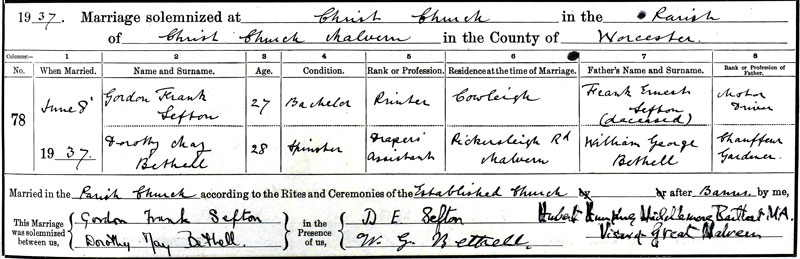 19 37. Marriage solemnized at Christ Church in the Parish
of Christ Church Malvern in the County of Worcester.
Columns:— 1 2 3 4 5 6 7 8
No. When Married. Name and Surname. Age. Condition. Rank or Profession. Residence at the time of Marriage. Father's Name and Surname. Rank or Profession of Father.
78 June 8th Gordon Frank Sefton 27 Bachelor Printer Cowleigh Frank Ernest Sefton (deceased) Motor Driver
19 37. Dorothy May Bethell 28 Spinster Drapers' Assistant Pickersleigh Rd Malvern William George Bethell Chauffeur Gardener.
Married in the Parish Church according to the Rites and Ceremonies of the Established Church by or after Banns, by me,
This Marriage was solemnized between us, Gordon Frank Sefton in the Presence of us, D E Sefton Hubert Humphrey Middlemore Bartleet M.A.
Dorothy May Bethell. W. G. Bethell. Vicar of Great Malvern